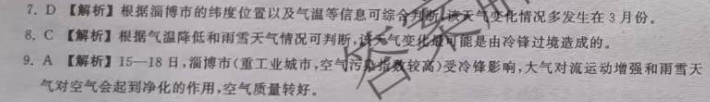 7. D 【解析】根据淄博市的纬度位置以及气温等信息可综合判断,该天气变化情况多发生在3月份。
8. C 【解析】根据气温降低和雨雪天气情况可判断,该天气变化最可能是由冷锋过境造成的。
9. A 【解析】15—18日,淄博市(重工业城市,空气污染指数较高)受冷锋影响,大气对流运动增强和雨雪天
气对空气会起到净化的作用,空气质量转好。